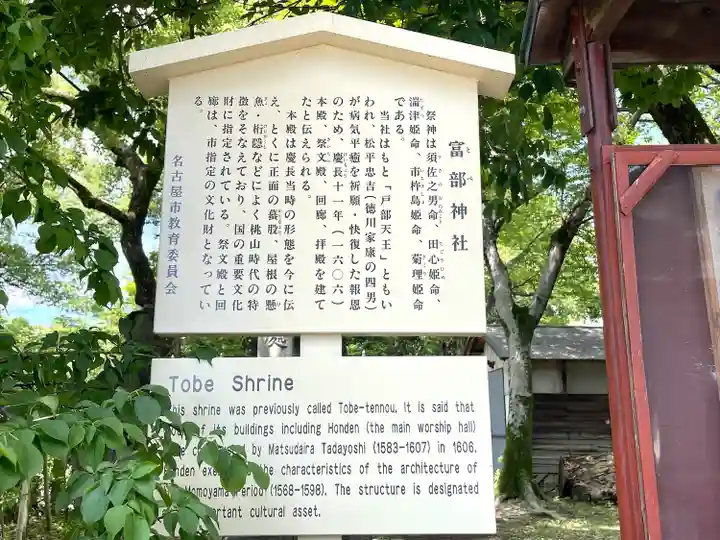 富部神社
祭神は須佐之男命、田心姫命、
湍津姫命、市杵島姫命、菊理姫命
である。
当社はもと「戸部天王」ともい
われ、松平忠吉(徳川家康の四男)
が病気平癒を祈願・快復した報恩
のため、慶長十一年(一六〇六)
本殿、祭文殿、回廊、拝殿を建て
たと伝えられる。
本殿は慶長当時の形態を今に伝
え、とくに正面の蟇股、屋根の懸
魚・桁隠などによく桃山時代の特
徴をそなえており、国の重要文化
財に指定されている。祭文殿と回
廊は、市指定の文化財となってい
る。
名古屋市教育委員会
Tobe Shrine
his shrine was previously called Tobe-tennou. It is said that
of its buildings including Honden (the main worship hall)
by Matsudaira Tadayoshi (1583-1607) in 1606.
the characteristics of the architecture of
Momoyama Period (1568-1598). The structure is designated
cultural asset.